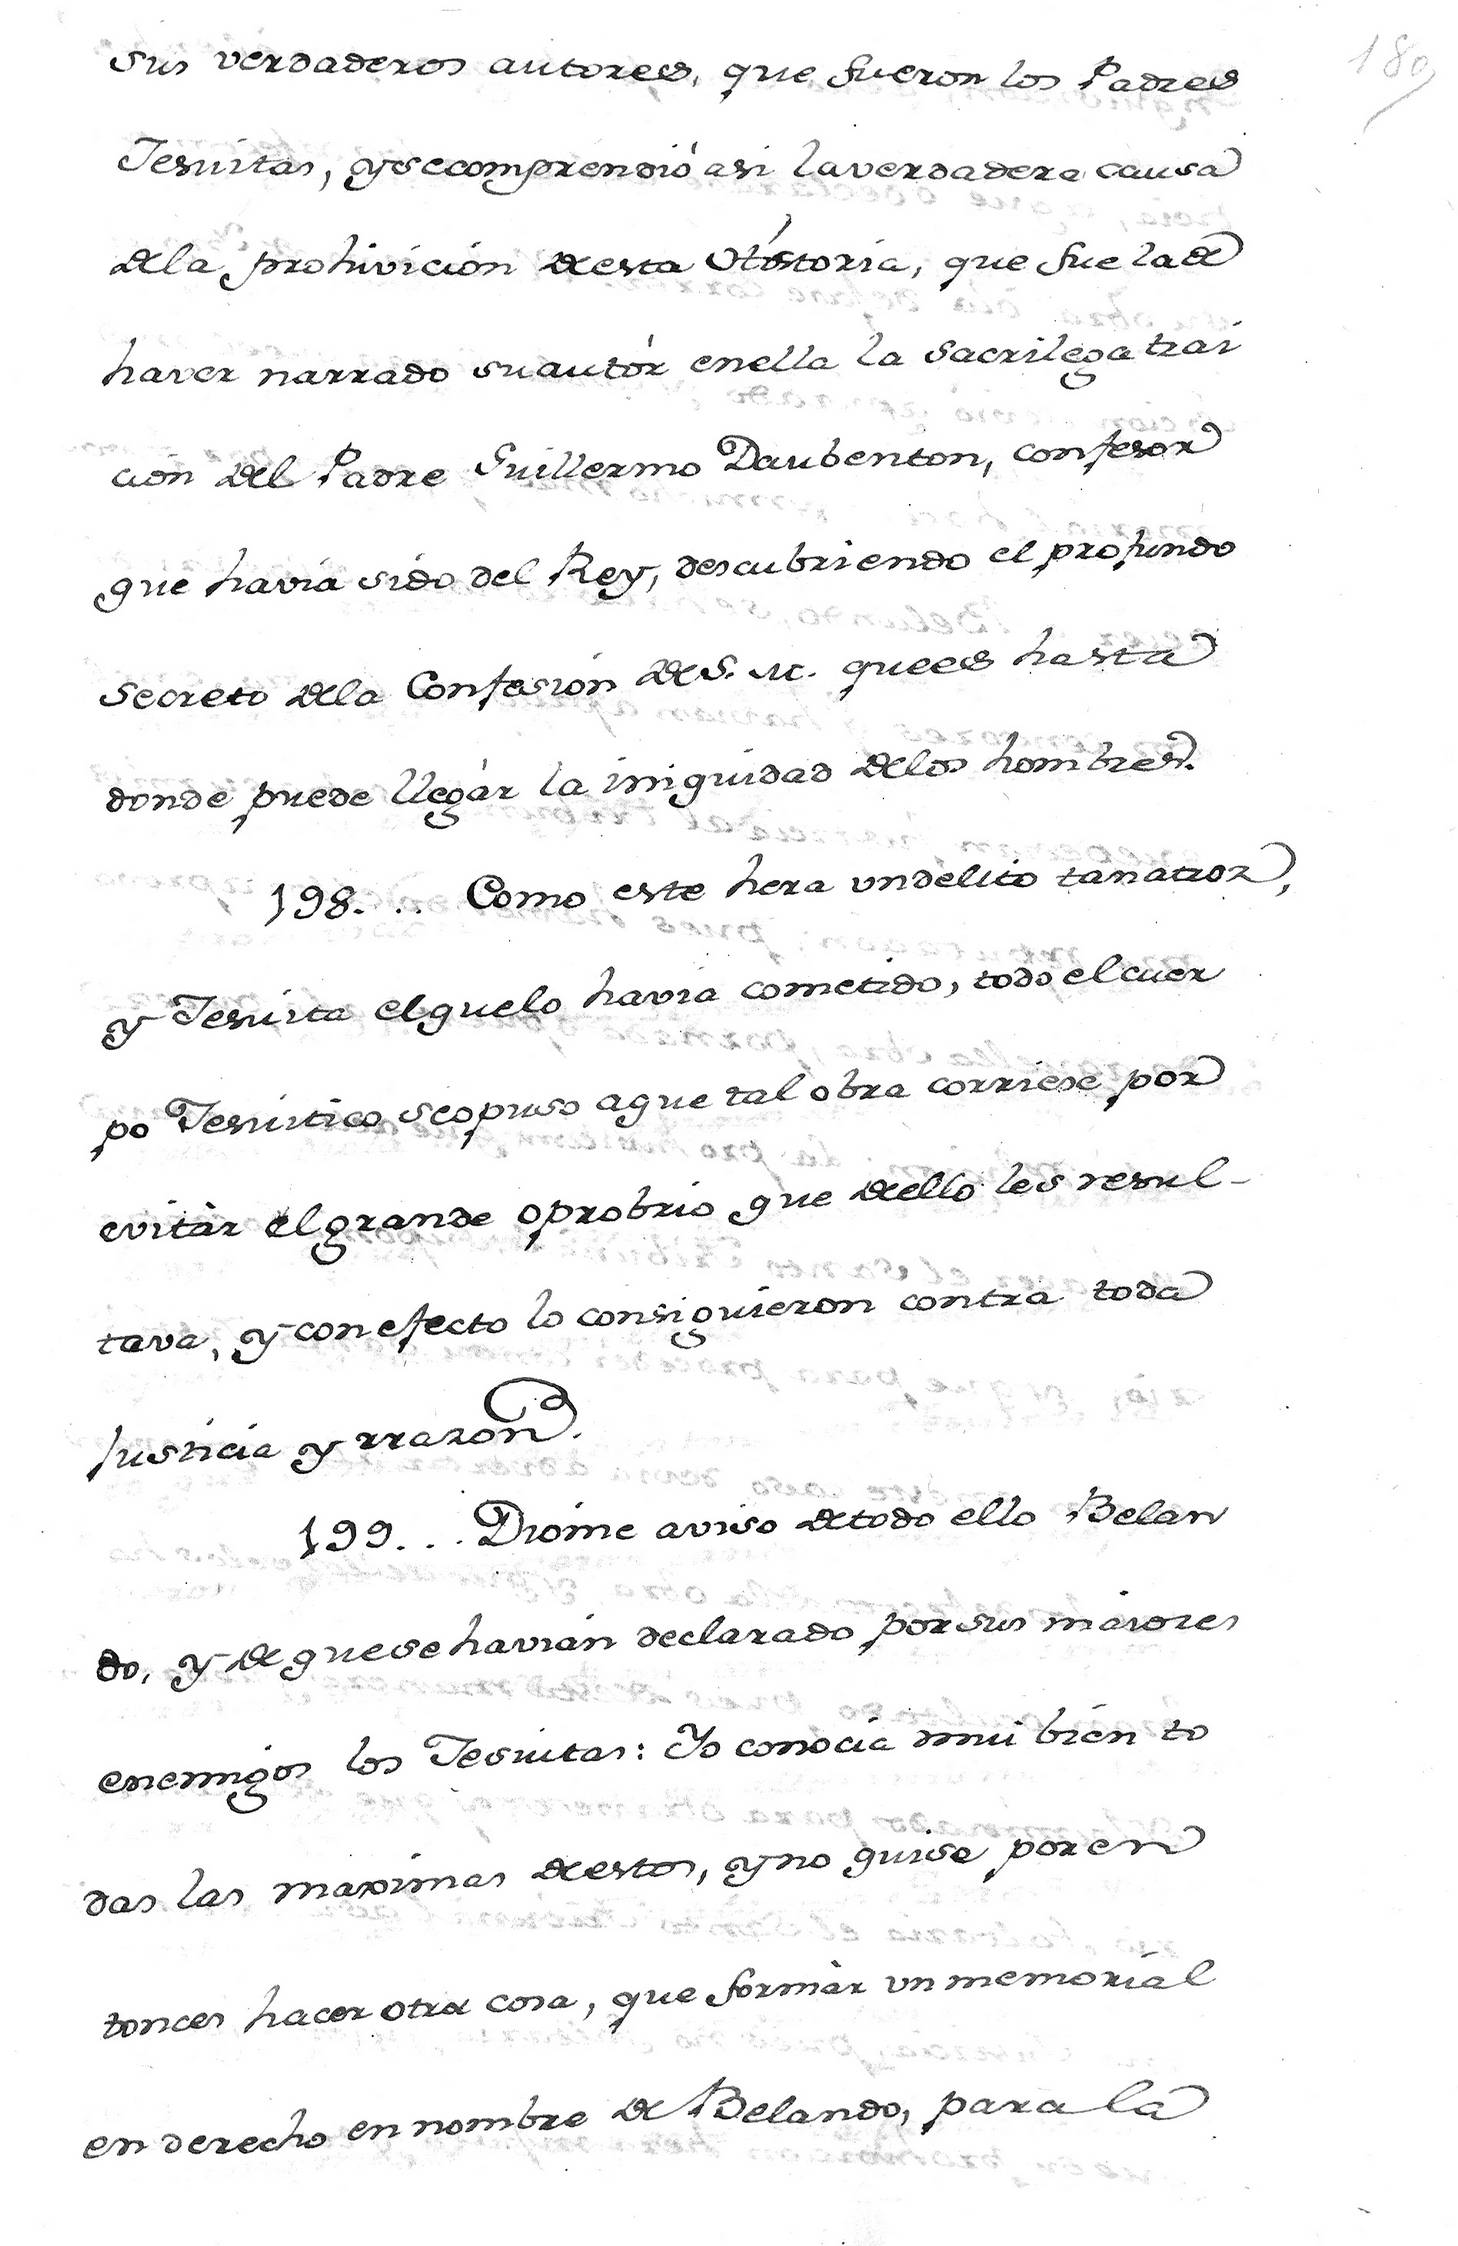 180
sus verdaderos autores, que fueron los Padres
Jesuitas, y se comprendió asi la verdadera causa
de la prohivición de esta Historia, que fue la de
haver narrado su autór en ella la sacrilega trai
ción del Padre Guillermo Daubenton, confesor
que havia sido del Rey, descubriendo el profundo
secreto de la Confesión de S. M. que es hasta
donde puede llegár la iniquidad de los hombres.
198... Como este hera un delito tan atroz,
y Jesuita el que lo havia cometido, todo el cuer
po Jesuitico se opuso a que tal obra corriese por
evitàr el grande oprobrio que de ello les resul-
tava, y con efecto lo consiguieron contra toda
Justicia y rrazon.
199... Dióme aviso de todo ello Belan
do, y de que se havian declarado por sus maiores
enemigos los Jesuitas: Yo conocia mui bien to
das las maximas de estos, y no quise por en
tonces hacer otra cosa, que formàr un memorial
en derecho en nombre de Belando, para la